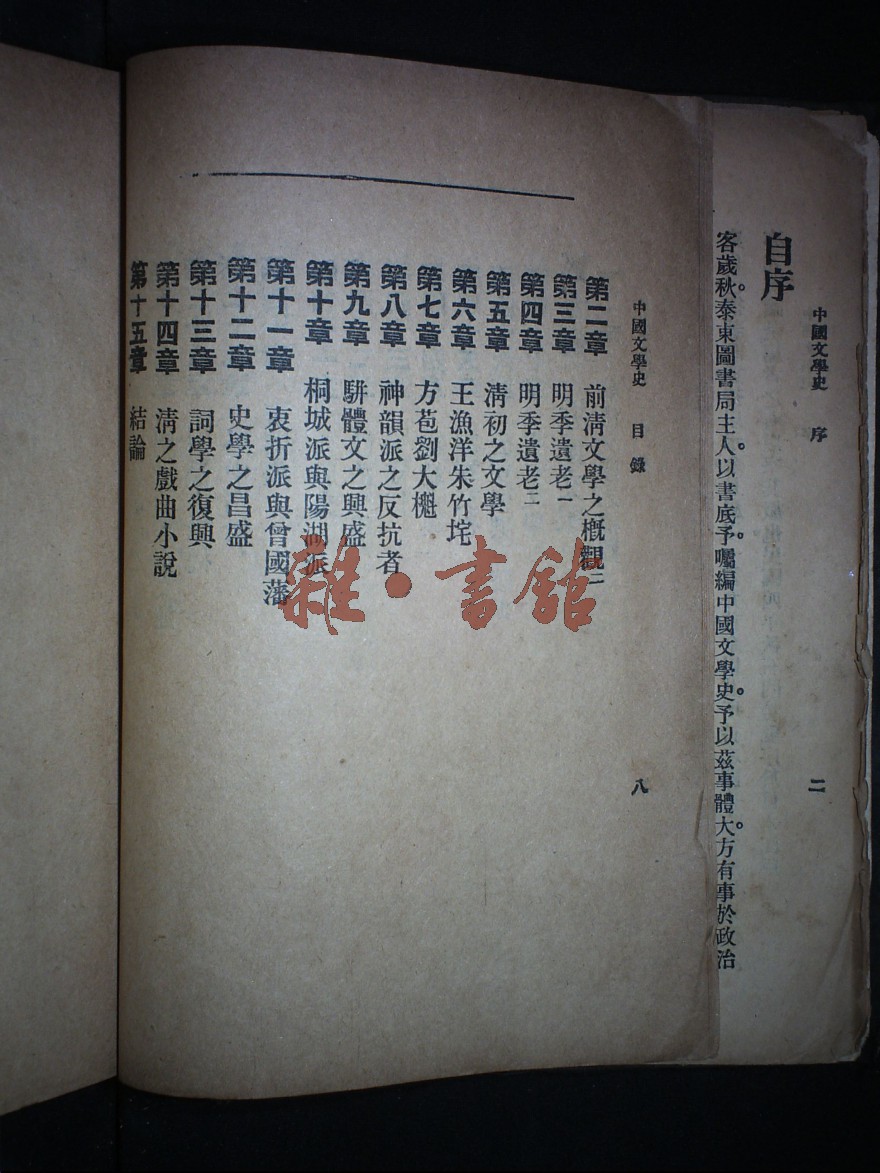 中國文學史 序 二
自序
客歲秋。泰東圖書局主人。以書底予。囑編中國文學史。予以茲事體大。方有事於政治
中國文學史 目錄 八
第二章 前清文學之概觀二
第三章 明季遺老一
第四章 明季遺老二
第五章 清初之文學
第六章 王漁洋朱竹垞
第七章 方苞劉大櫆
第八章 神韻派之反抗者
第九章 駢體文之興盛
第十章 桐城派與陽湖派
第十一章 衷折派與曾國藩
第十二章 史學之昌盛
第十三章 詞學之復興
第十四章 清之戲曲小說
第十五章 結論
雜·書館